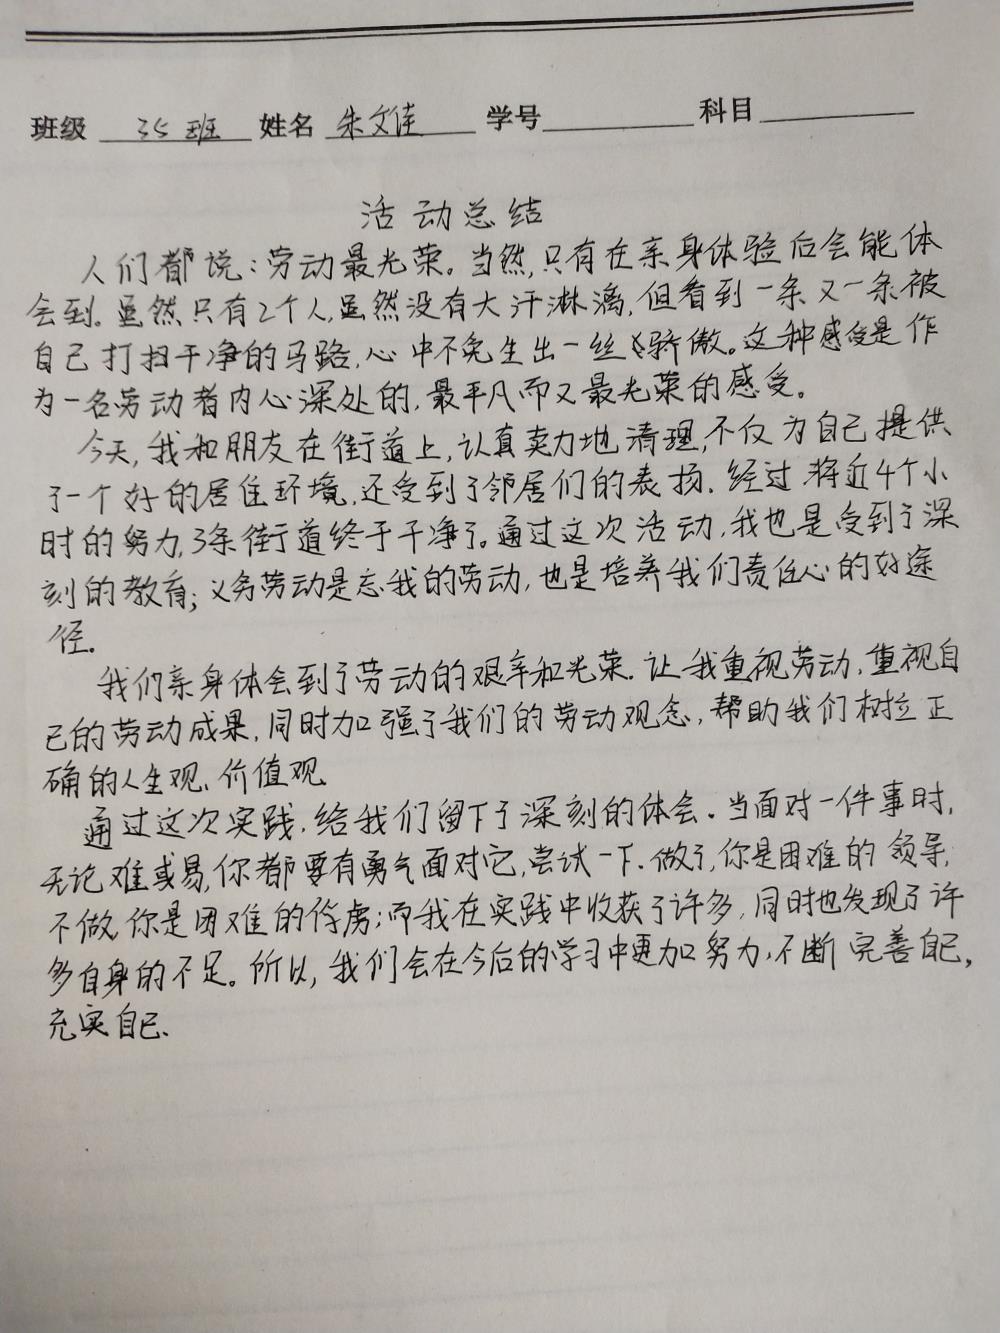 班级 35班 姓名 朱文佳 学号 科目
活动总结
人们都说:劳动最光荣。当然,只有在亲身体验后会能体
会到。虽然只有2个人,虽然没有大汗淋漓,但看到一条又一条被
自己打扫干净的马路,心中不免生出一丝骄傲。这种感受是作
为一名劳动者内心深处的,最平凡而又最光荣的感受。
今天,我和朋友在街道上,认真卖力地清理,不仅为自己提供
了一个好的居住环境,还受到了邻居们的表扬.经过将近4个小
时的努力,3条街道终于干净了。通过这次活动,我也是受到了深
刻的教育;义务劳动是忘我的劳动,也是培养我们责任心的好途
径.
我们亲身体会到了劳动的艰辛和光荣.让我重视劳动,重视自
己的劳动成果,同时加强了我们的劳动观念,帮助我们树立正
确的人生观、价值观
通过这次实践,给我们留下了深刻的体会.当面对一件事时,
无论难或易,你都要有勇气面对它,尝试一下.做了,你是困难的领导,
不做,你是困难的俘虏;而我在实践中收获了许多,同时也发现了许
多自身的不足。所以,我们会在今后的学习中更加努力,不断完善自己,
充实自己.